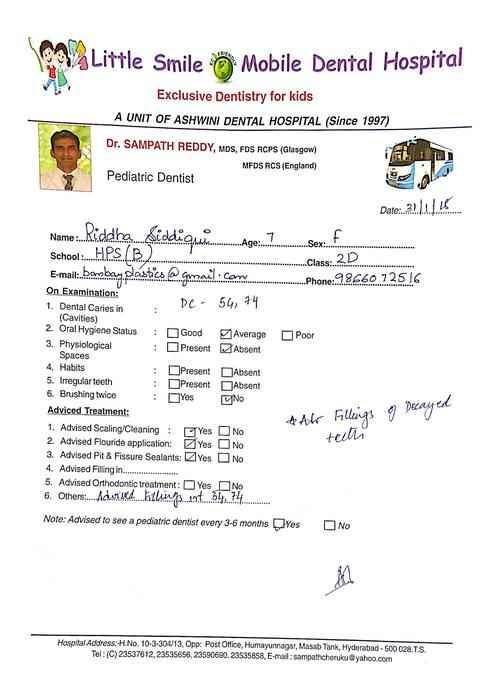 Little Smile Mobile Dental Hospital
Exclusive Dentistry for kids
A UNIT OF ASHWINI DENTAL HOSPITAL (Since 1997)
Dr. SAMPATH REDDY, MDS, FDS RCPS (Glasgow)
MFDS RCS (England)
Pediatric Dentist
Date: 31/1/18
Name: Riddha Siddiqui Age: 7 Sex: f
School: HPS(B) Class: 2D
E-mail: bombayplastics@gmail.com Phone: 9866072516
On Examination:
1. Dental Caries in (Cavities) : DC - 54, 74
2. Oral Hygiene Status : Good Average Poor
3. Physiological Spaces : Present Absent
4. Habits : Present Absent
5. Irregular teeth : Present Absent
6. Brushing twice : Yes No
Adviced Treatment:
1. Advised Scaling/Cleaning : Yes No
2. Advised Flouride application: Yes No
3. Advised Pit & Fissure Sealants: Yes No
4. Advised Filling in
5. Advised Orthodontic treatment : Yes No
6. Others: Advised Fillings int 54, 74
Fillings of Decayed
teeth
Note: Advised to see a pediatric dentist every 3-6 months Yes No
Hospital Address:-H.No. 10-3-304/13, Opp: Post Office, Humayunnagar, Masab Tank, Hyderabad - 500 028.T.S.
Tel : (C) 23537612, 23535656, 23590690. 23535858, E-mail : sampathcheruku@yahoo.com